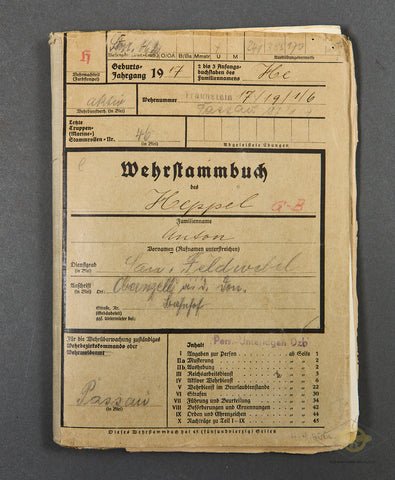 H
Geburts- Jahrgang 1917
2 bis 3 Anfangs- buchstaben des Familiennamens He
Wehrnummer Traunstein 17/19/1/6
Passau
aktiv
Letzte Truppen- (Marine-) Stammrollen-Nr. 46
Abgeleistete Übungen
Wehrstammbuch
des
Heppel
a-B
Familienname
Anton
Vornamen (Rufnamen unterstreichen)
Dienstgrad (in Blei) San. Feldwebel
Anschrift (in Blei) Ort: Obernzell a. d. Don.
Bahnhof
Straße, Nr.
Für die Wehrüberwachung zuständiges
Wehrbezirkskommando oder
Wehrmeldeamt
(in Blei)
Passau
Inhalt: Pers.-Unterlagen Ozb
I Angaben zur Person . . ab Seite 1
IIa Musterung 2
IIb Aushebung 2
III Reichsarbeitsdienst 3
IV Aktiver Wehrdienst 6
V Wehrdienst im Beurlaubtenstande 22
VI Strafen 30
VII Führung und Beurteilung 34
VIII Beförderungen und Ernennungen 42
IX Orden und Ehrenzeichen 44
X Nachträge zu Teil I–IX 45
Dieses Wehrstammbuch hat 45 (fünfundvierzig) Seiten